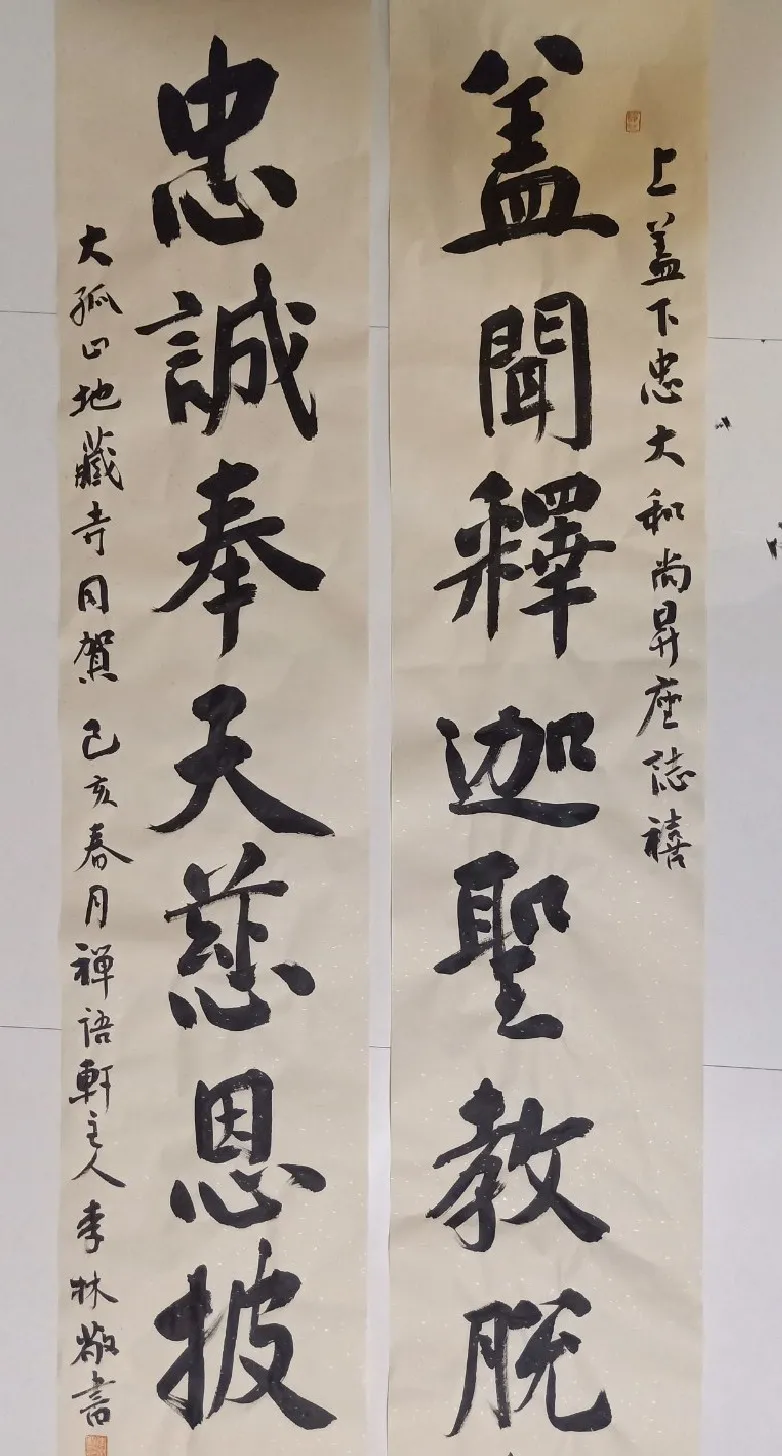 上盖下忠大和尚昇座誌禧
盖聞釋迦聖教脱
忠誠奉天慈恩披
大孤山地藏寺同贺 己亥春月禅语軒主人李林敬書